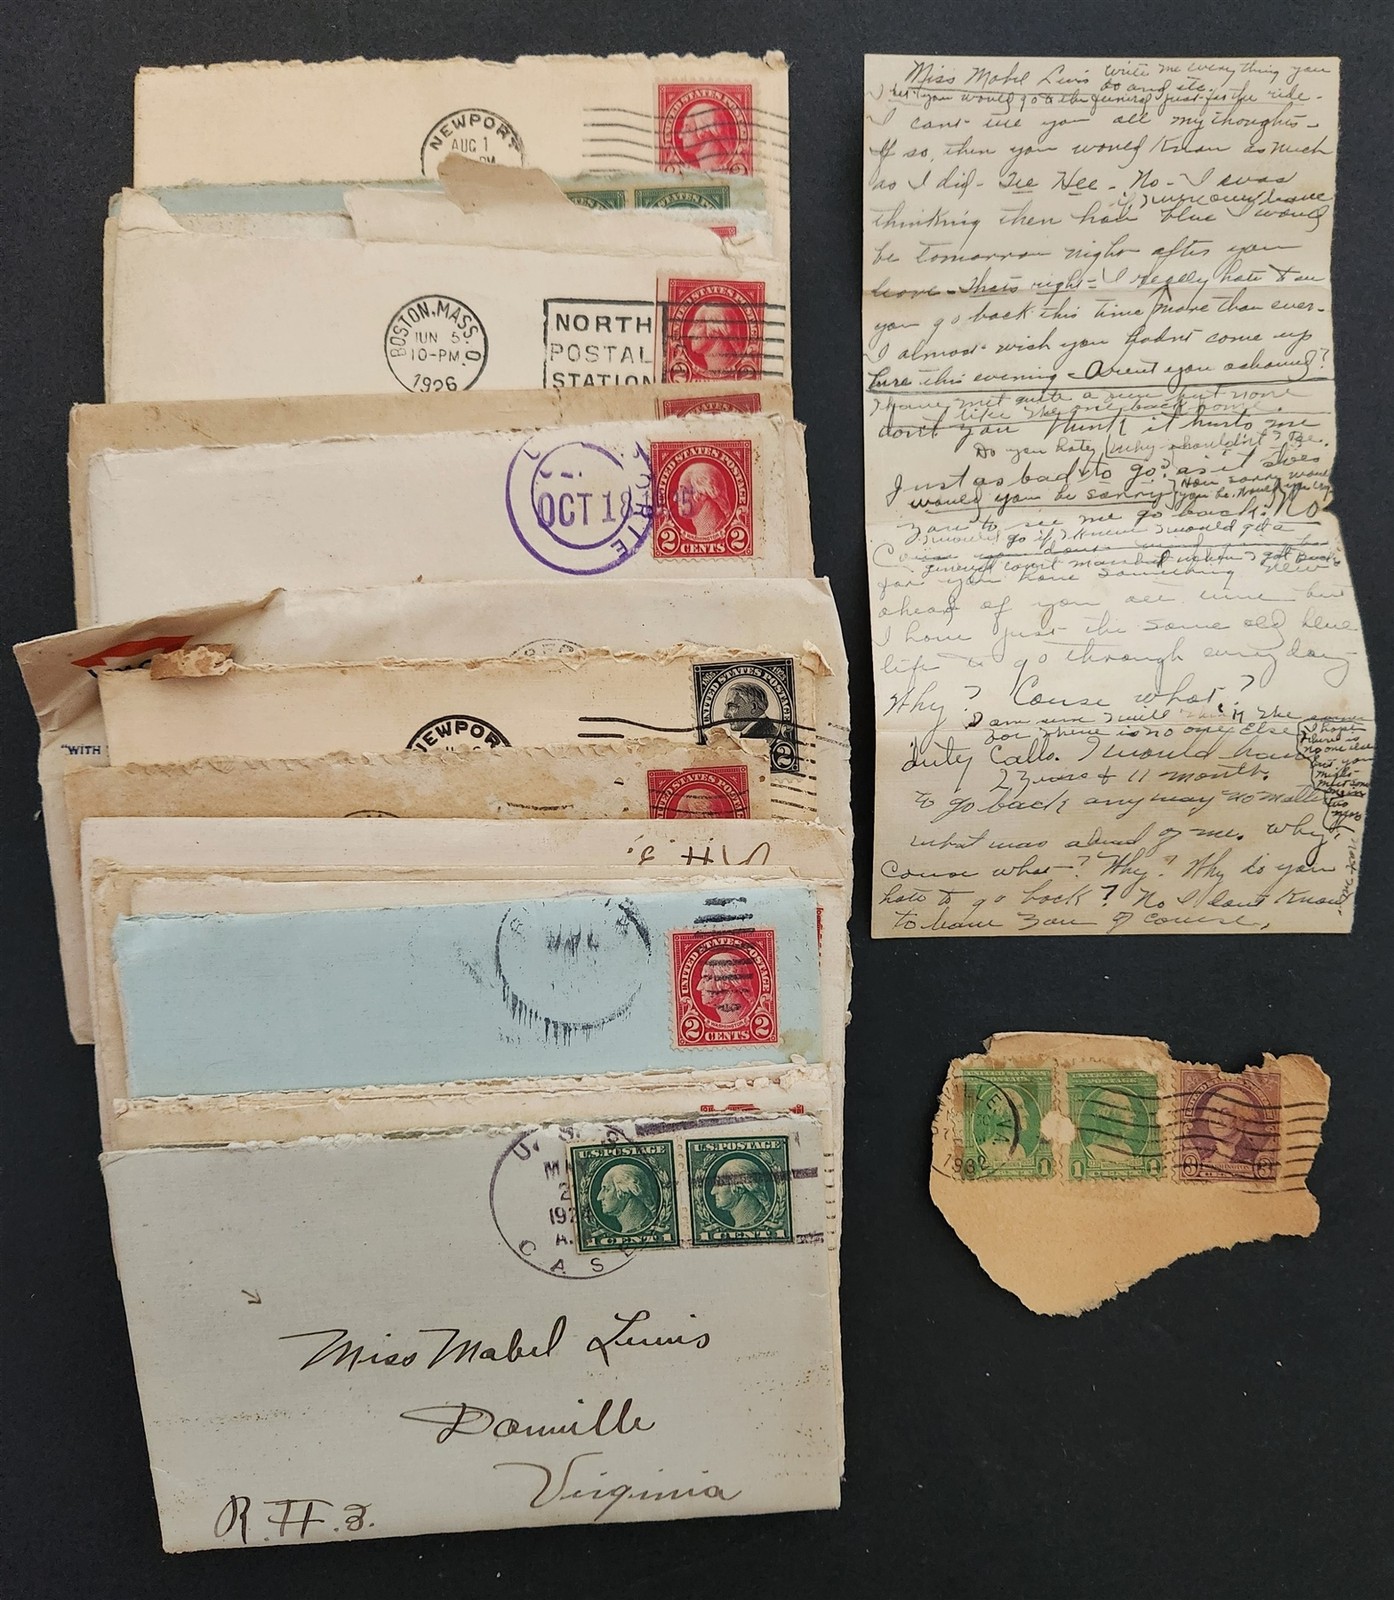 NEWPORT
AUG 1
PM
UNITED STATES POSTAGE
2
2
BOSTON, MASS
JUN 5
10-PM
1926
NORTH
POSTAL
STATION
UNITED STATES POSTAGE
2
OCT 18
UNITED STATES POSTAGE
2 CENTS 2
DEC
"WITH
NEWPOR
UNITED STATES POSTAGE
2
UNITED STATES POSTAGE
UNITED STATES POSTAGE
2 CENTS 2
U.S.
MAY
2
192
A.
CAS
U.S. POSTAGE
1 CENT 1
U.S. POSTAGE
1 CENT 1
Miss Mabel Lewis
Danville
Virginia
Miss Mabel Lewis write me everything you
do and etc.
I bet you would go to the funeral just for the ride-
I cant tell you all my thoughts-
If so, then you would know as much
as I did- Tee Hee- No- I was
if I were only home
thinking then how blue I would
be tomorrow night after you
leave- Thats right- I really hate to see
you go back this time more than ever-
I almost wish you hadnt come up
here this evening- Arent you ashamed?
I have met quite a few but none
like the one back home.
dont you think it hurts me
Do you hate Why shouldn't I be.
Just as bad to go? as it does
would you be sorry
you to see me go back. No
I would go if I knew I would get a
general court martial when I got back
for you have something new
ahead of you all time but
I have just the same old blue
life to go through every day
Why? Cause what?
I am sure I will
for there is no one Else
I hope
there is
no one else
but you
duty Calls. I would have
2 years & 11 months.
to go back anyway no matter
what was ahead of me. Why?
Cause what? Why? Why do you
hate to go back? No I dont know
to leave you of course.
1932
1
1
1
3
3